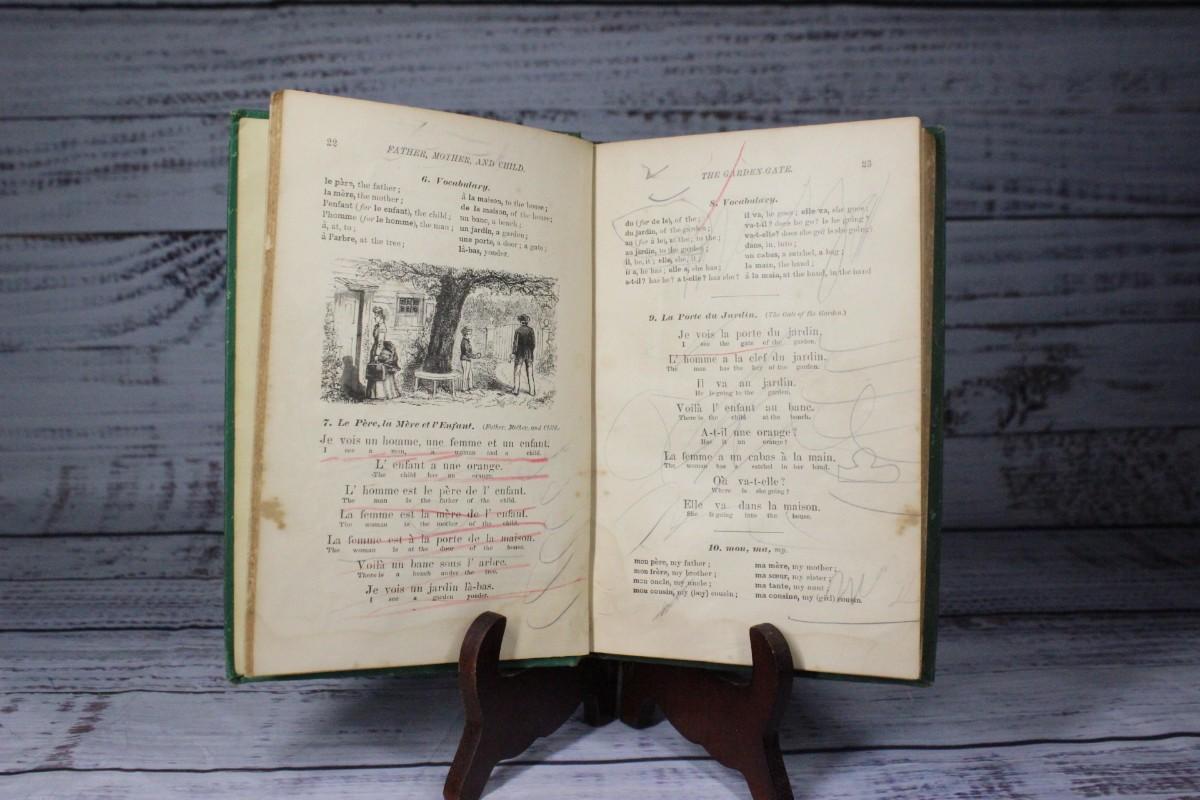 22
FATHER, MOTHER, AND CHILD.
6. Vocabulary.
le père, the father;
la mère, the mother;
l'enfant (for le enfant), the child;
l'homme (for le homme), the man;
à, at, to;
à l'arbre, at the tree;
à la maison, to the house;
de la maison, of the house;
un banc, a bench;
un jardin, a garden;
une porte, a door; a gate;
là-bas, yonder.
7. Le Père, la Mère et l'Enfant. (Father, Mother, and Child.
Je vois un homme, une femme et un enfant.
I see a man, a woman and a child.
L' enfant a une orange.
The child has an orange.
L' homme est le père de l' enfant.
The man is the father of the child.
La femme est la mère de l' enfant.
The woman is the mother of the child.
La femme est à la porte de la maison.
The woman is at the door of the house.
Voilà un banc sous l' arbre.
There is a bench under the tree.
Je vois un jardin là-bas.
I see a garden yonder.
THE GARDEN-GATE.
23
8. Vocabulary.
du (for de le), of the;
du jardin, of the garden;
au (for à le), at the; to the;
au jardin, to the garden;
il, he, it; elle, she, it;
il a, he has; elle a, she has;
a-t-il? has he? a-t-elle? has she?
il va, he goes; elle va, she goes;
va-t-il? does he go? is he going?
va-t-elle? does she go? is she going?
dans, in, into;
un cabas, a satchel, a bag;
la main, the hand;
à la main, at the hand, in the hand
9. La Porte du Jardin. (The Gate of the Garden.)
Je vois la porte du jardin.
I see the gate of the garden.
L' homme a la clef du jardin.
The man has the key of the garden.
Il va au jardin.
He is going to the garden.
Voilà l' enfant au banc.
There is the child at the bench.
A-t-il une orange?
Has it an orange?
La femme a un cabas à la main.
The woman has a satchel in her hand.
Où va-t-elle?
Where is she going?
Elle va dans la maison.
She is going into the house.
10. mon, ma, my.
mon père, my father;
mon frère, my brother;
mon oncle, my uncle;
mon cousin, my (boy) cousin;
ma mère, my mother;
ma sœur, my sister;
ma tante, my aunt;
ma cousine, my (girl) cousin.